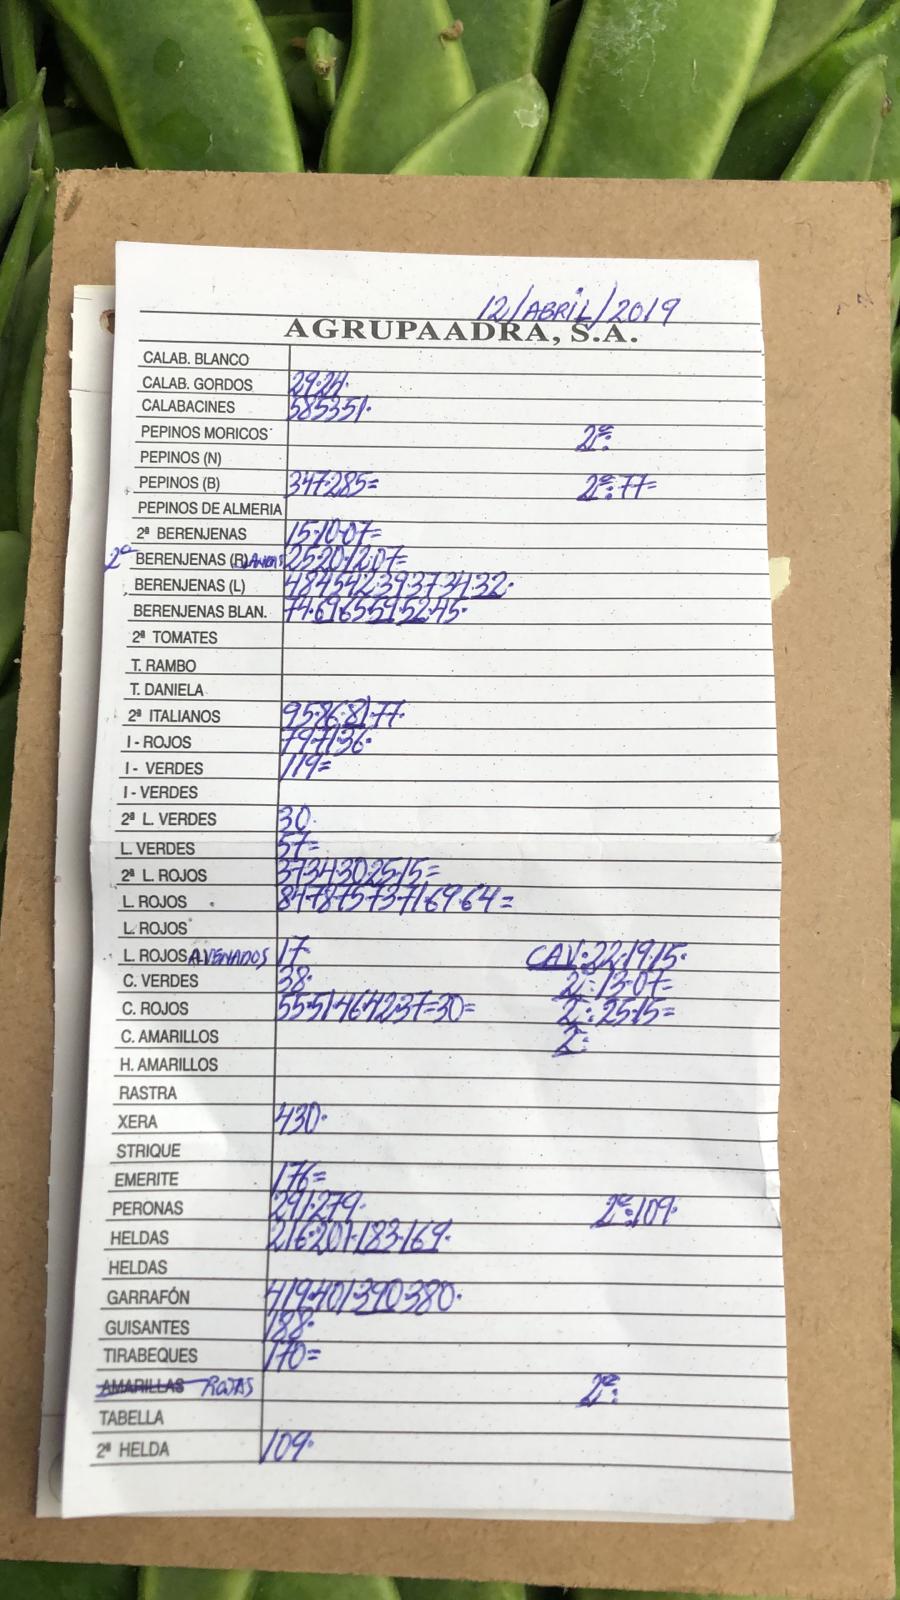 12/ABRIL/2019
AGRUPAADRA, S.A.
CALAB. BLANCO
CALAB. GORDOS 29·24·
CALABACINES 585351·
PEPINOS MORICOS 2ª:
PEPINOS (N)
PEPINOS (B) 347·285= 2ª:77=
PEPINOS DE ALMERIA
2ª BERENJENAS 15·10·07=
2ª BERENJENAS (R) 25·20·12·07=
BERENJENAS (L) 484542·39·37·34·32·
BERENJENAS BLAN. 74·69·65·59·52·45·
2ª TOMATES
T. RAMBO
T. DANIELA
2ª ITALIANOS 95·86·81·77·
I - ROJOS 79·71·36·
I - VERDES 119=
I - VERDES
2ª L. VERDES 30·
L. VERDES 57=
2ª L. ROJOS 37·34·30·25·15=
L. ROJOS 84·78·75·73·71·69·64=
L. ROJOS
L. ROJOS AVENADOS 17· CAV:22·19·15·
C. VERDES 38· 2ª:13·07=
C. ROJOS 55·51·46·42·37=30= 2ª:25·15=
C. AMARILLOS 2ª:
H. AMARILLOS
RASTRA
XERA 430·
STRIQUE
EMERITE 176=
PERONAS 291·279· 2ª:109·
HELDAS 216·201·183·169·
HELDAS
GARRAFÓN 419·401·390·380·
GUISANTES 188·
TIRABEQUES 170=
AMARILLAS ROJAS 2ª:
TABELLA
2ª HELDA 109·